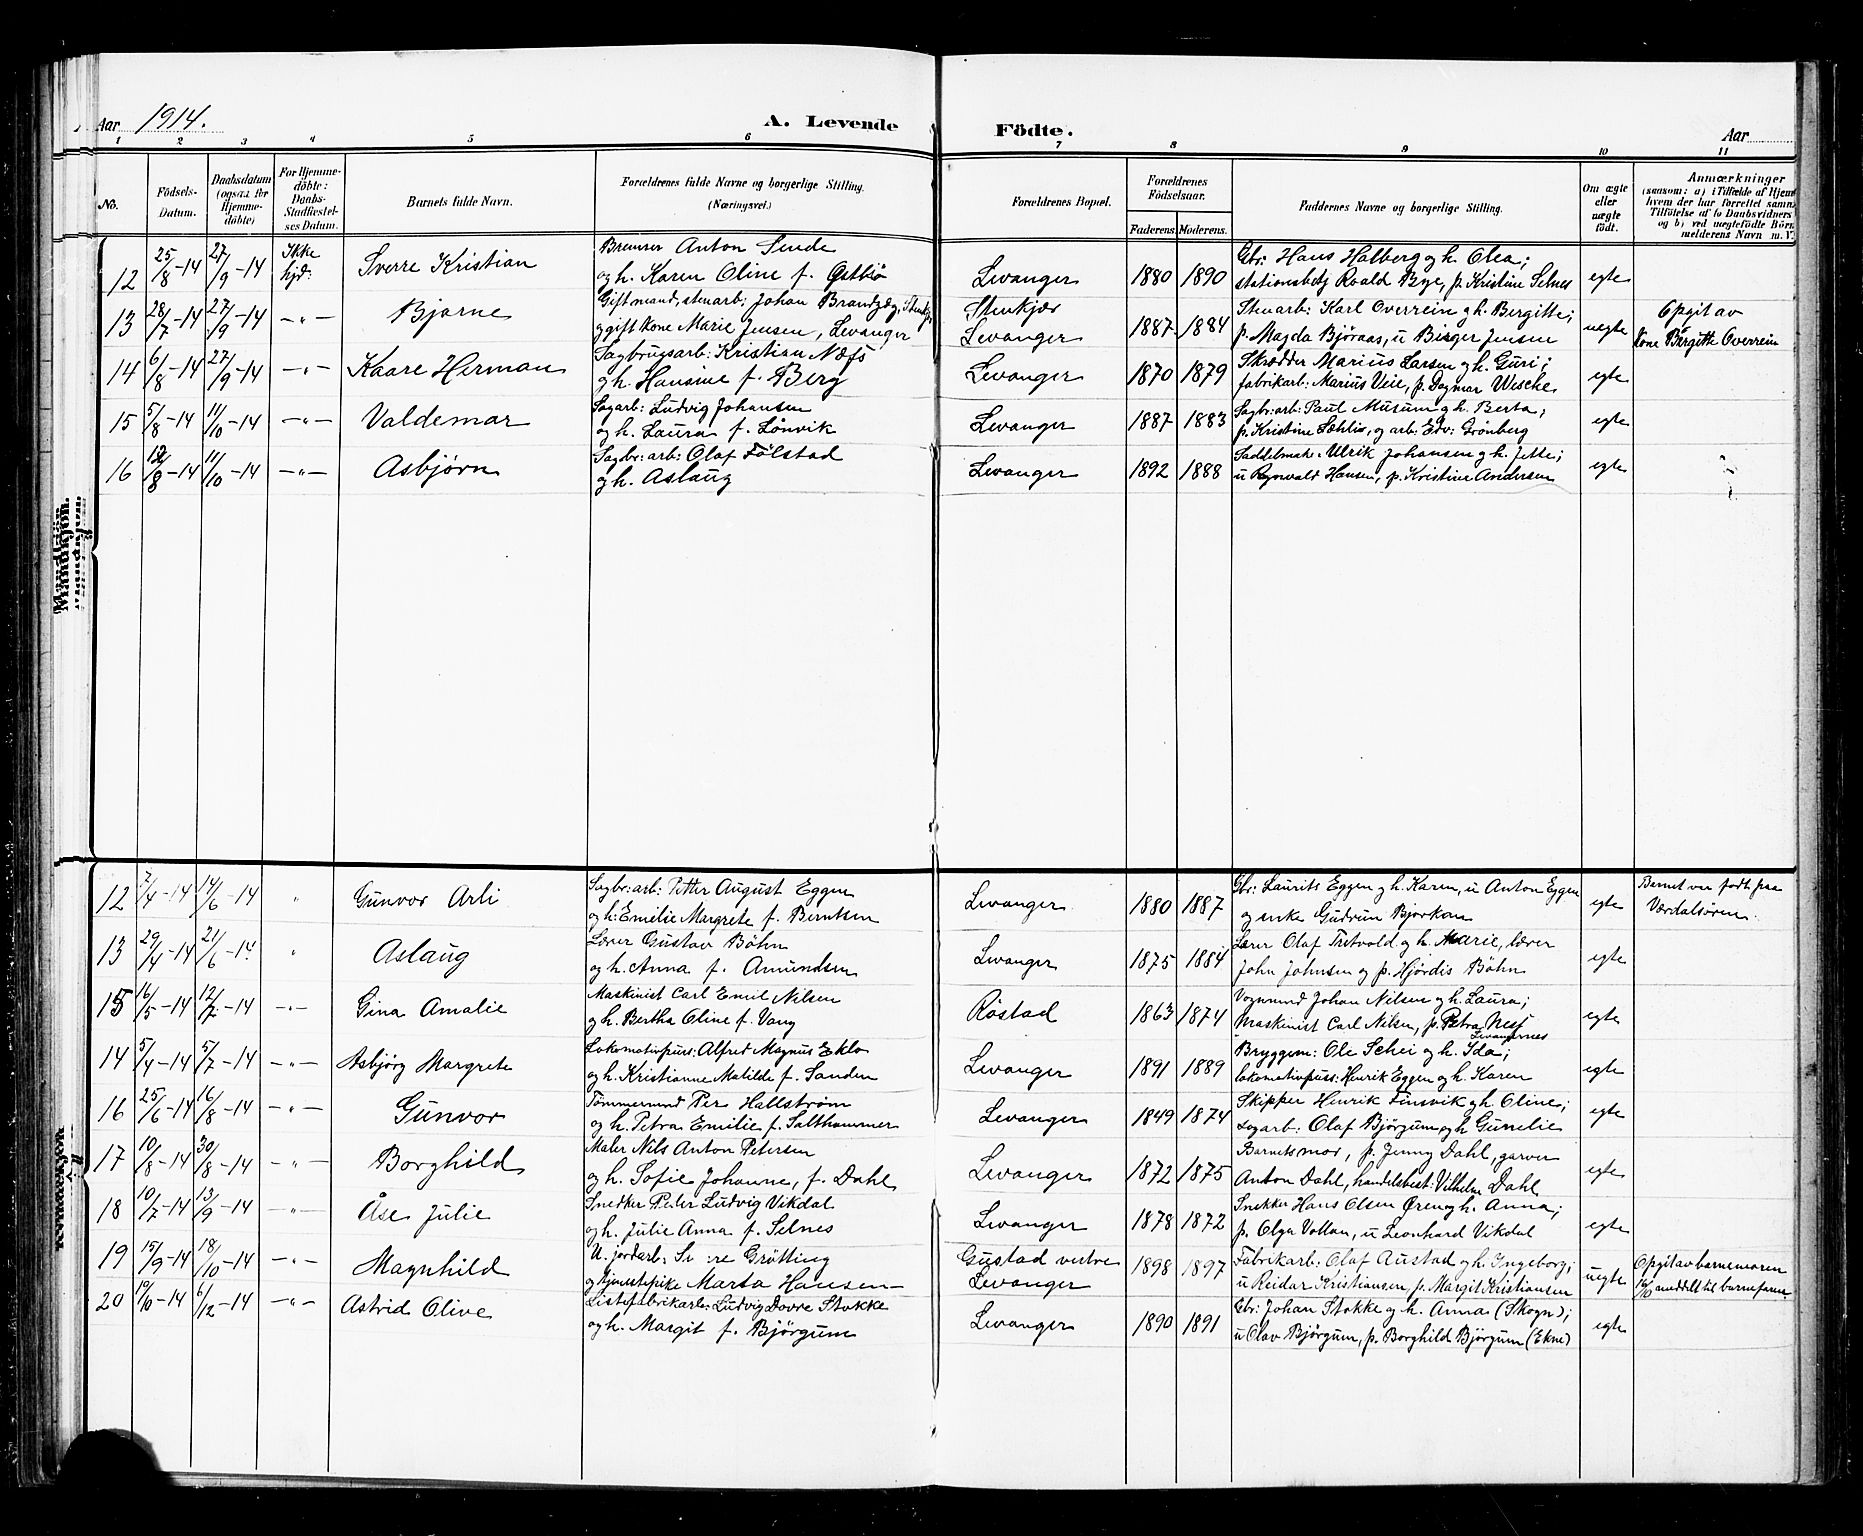 Aar 1914. A. Levende Födte. Aar
1 2 3 4 5 6 7 8 9 10 11
No. Födsels-Datum. Daabsdatum (ogsaa for Hjemme-döbte) For Hjemme-döbte: Daabs-Stadfæstel-ses Datum. Barnets fulde Navn. Forældrenes fulde Navne og borgerlige Stilling. (Næringsvei.) Forældrenes Bopæl. Forældrenes Födselsaar. Faderens. Moderens. Faddernes Navne og borgerlige Stilling. Om ægte eller uægte födt. Anmærkninger
(saasom: a) i Tilfælde af Hjem
hvem der har forrettet samm
Tilföielse af to Daabsvidners
og b) ved uægtefödte Börn
melderens Navn m. V.
12 25/8-14 27/9-14 Ikke hjd: Sverre Kristian Bremser Anton Sende
og h. Karen Oline f. Østbiö Levanger 1880 1890 Gbr: Hans Halberg og h. Olea;
stationsbetj Roald Bye, p. Kristine Selnes egte
13 28/7-14 27/9-14 -"- Bjarne Gift mand, stenarb: Johan Brandzæg, Stenkj.
og gift kone Marie Jensen, Levanger Stenkjær
Levanger 1887 1884 Stenarb: Karl Overrein og h. Bergitte;
p. Magda Björaas, u Birger Jensen uegte Opgit av
kone Bergitte Overrein
14 6/8-14 27/9-14 -"- Kaare Herman Sagbrugsarb: Kristian Næfs
og h. Hansine f. Berg Levanger 1870 1879 Skrædder Marius Larsen og h. Guri;
fabrikarb: Marius Veie, p. Dagmar Wesche egte
15 5/8-14 11/10-14 -"- Valdemar Sagarb: Ludvig Johansen
og h. Laura f. Lönvik Levanger 1887 1883 Sagbr: arb: Paul Musum og h. Berta;
p. Kristine Sæhlio, og arb: Edv: Grönberg egte
16 12/8-14 11/10-14 -"- Asbjørn Sagbr: arb: Olaf Fölstad
og h. Aslaug Levanger 1892 1888 Saddelmak: Ulrik Johansen og h. Jette;
u Ragnvald Hansen, p. Kristine Andersen egte
Mandkjön.
12 7/4-14 14/6-14 " Gunvor Arli Sagbr: arb: Petter August Eggen
og h: Emilie Margrete f. Berntsen Levanger 1880 1887 Gbr: Laurits Eggen og h. Karen, u Anton Eggen
og enke Gudrun Bjorkan egte Barnet var födt paa
Værdalsören.
13 29/4-14 21/6-14 " Aslaug Lærer Gustav Böhn
og h. Anna f. Amundsen Levanger 1875 1884 Lærer Olaf Tretvold og h. Marie, lærer
John Johnsen og p. Hjördis Böhn egte
15 16/5-14 12/7-14 -"- Gina Amalie Maskinist Carl Emil Nilsen
og h. Bertha Oline f. Vang Röstad 1863 1874 Vognmand Johan Nilsen og h. Laura;
maskinist Carl Nilsen, p. Petra Nesf egte
14 5/4-14 5/7-14 -"- Asbjörg Margrete Lokomotivpuss: Alfred Magnus Eklo
og h. Kristianne Matilde f. Sanden Levanger 1891 1889 Levangernes
Bryggem: Ole Schei og h. Ida;
lokomotivpuss: Henrik Eggen og h. Karen egte
16 25/6-14 16/8-14 -"- Gunvor Tömmermand Per Hallström
og h. Petra Emilie f. Salthammer Levanger 1849 1874 Skipper Henrik Finsvik og h. Oline;
sagarb: Olaf Björgum og h Gunelie egte
17 10/8-14 30/8-14 -"- Borghild Maler Nils Anton Petersen
og h. Sofie Johanne, f. Dahl Levanger 1872 1875 Barnets mor, p. Jenny Dahl, garver
Anton Dahl, handelsbest: Vilhelm Dahl egte
18 10/7-14 13/9-14 -"- Åse Julie Snedker Peder Ludvig Vikdal
og h. Julie Anna f. Selnes Levanger 1878 1872 Snekker Hans Olsen Øren og h. Anna;
p. Olga Vollan, u Leonhard Vikdal egte
19 15/9-14 18/10-14 -"- Magnhild U. jordarb: Grötting
og tjenestepike Marta Hansen Gustad vestre
Levanger 1898 1897 Fabrikarb: Olaf Austad og h. Ingeborg;
u Reidar Kristiansen, p. Margit Kristiansen uegte Opgit av barnemoren
16/10 meddelt til barnefaren
20 19/10-14 6/12-14 -"- Astrid Olive Listefabrikarb: Ludvig Dovre Stokke
og h. Margit f. Björgum Levanger 1890 1891 Gbr: Johan Stokke og h. Anna (Skogn);
u Olav Björgum, p. Borghild Björgum (Ekne) egte
Kvindekjön.